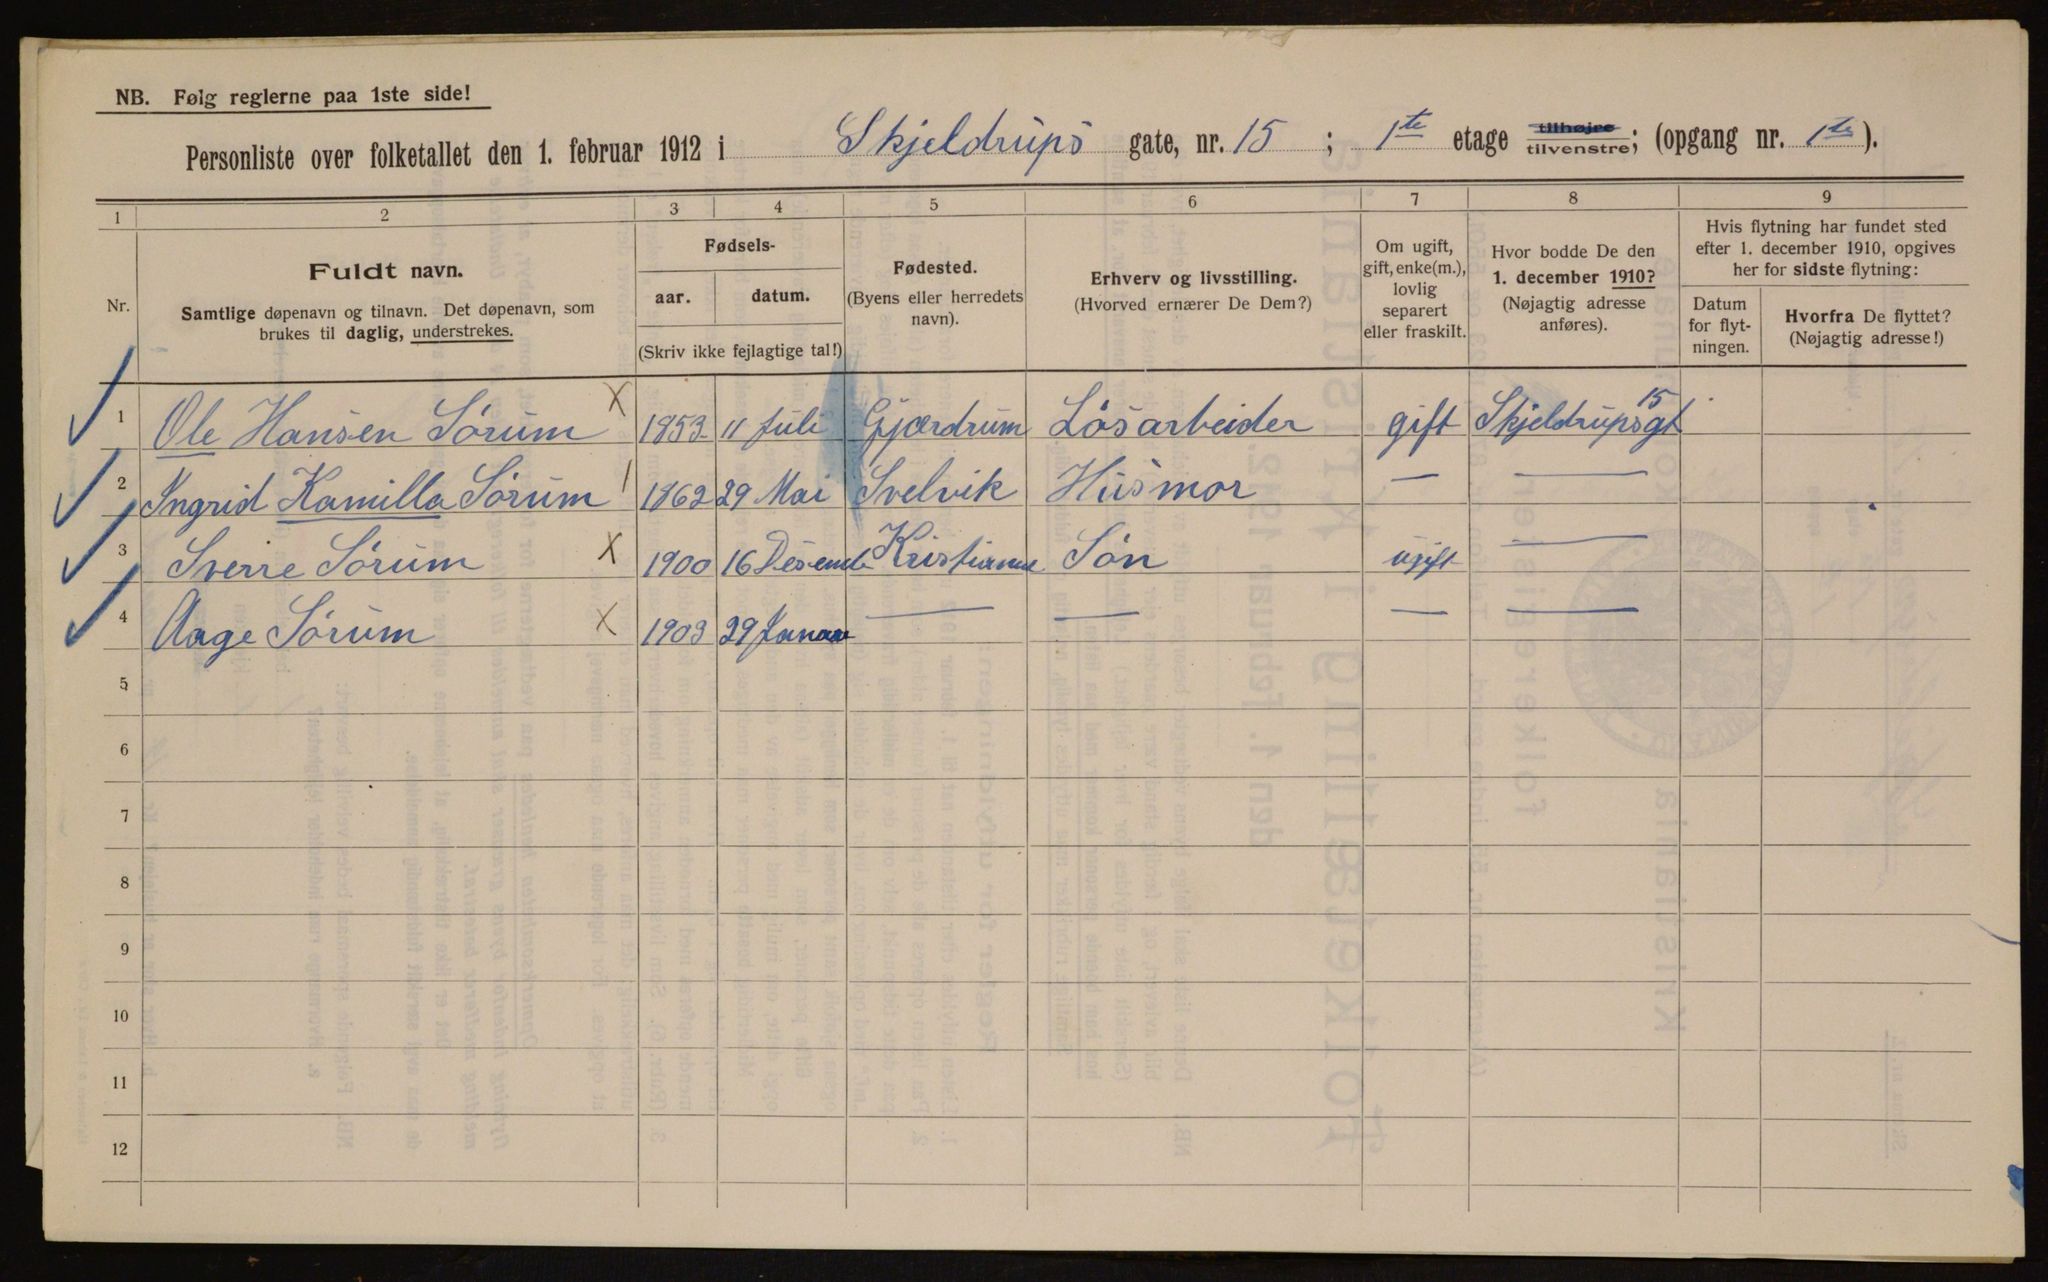 NB. Følg reglerne paa 1ste side!
Personliste over folketallet den 1. februar 1912 i Skjeldrups gate, nr. 15 ; 1te etage tilhøjre tilvenstre; (opgang nr. 1te ).
1 2 3 4 5 6 7 8 9
Nr.
Fuldt navn.
Samtlige døpenavn og tilnavn. Det døpenavn, som
brukes til daglig, understrekes.
Fødsels-
aar. datum.
(Skriv ikke fejlagtige tal!)
Fødested.
(Byens eller herredets
navn).
Erhverv og livsstilling.
(Hvorved ernærer De Dem?)
Om ugift,
gift, enke(m.),
lovlig
separert
eller fraskilt.
Hvor bodde De den
1. december 1910?
(Nøjagtig adresse
anføres).
Hvis flytning har fundet sted
efter 1. december 1910, opgives
her for sidste flytning:
Datum
for flyt-
ningen.
Hvorfra De flyttet?
(Nøjagtig adresse!)
1 Ole Hansen Sørum X 1853 11 Juli Gjærdrum Løsarbeider gift Skjeldrupsgt 15
2 Ingrid Kamilla Sørum 1 1862 29 Mai Svelvik Husmor — —
3 Sverre Sørum X 1900 16 Desemb Kristiania Søn ugift —
4 Aage Sørum X 1903 29 Januar — — — —
5
6
7
8
9
10
11
12